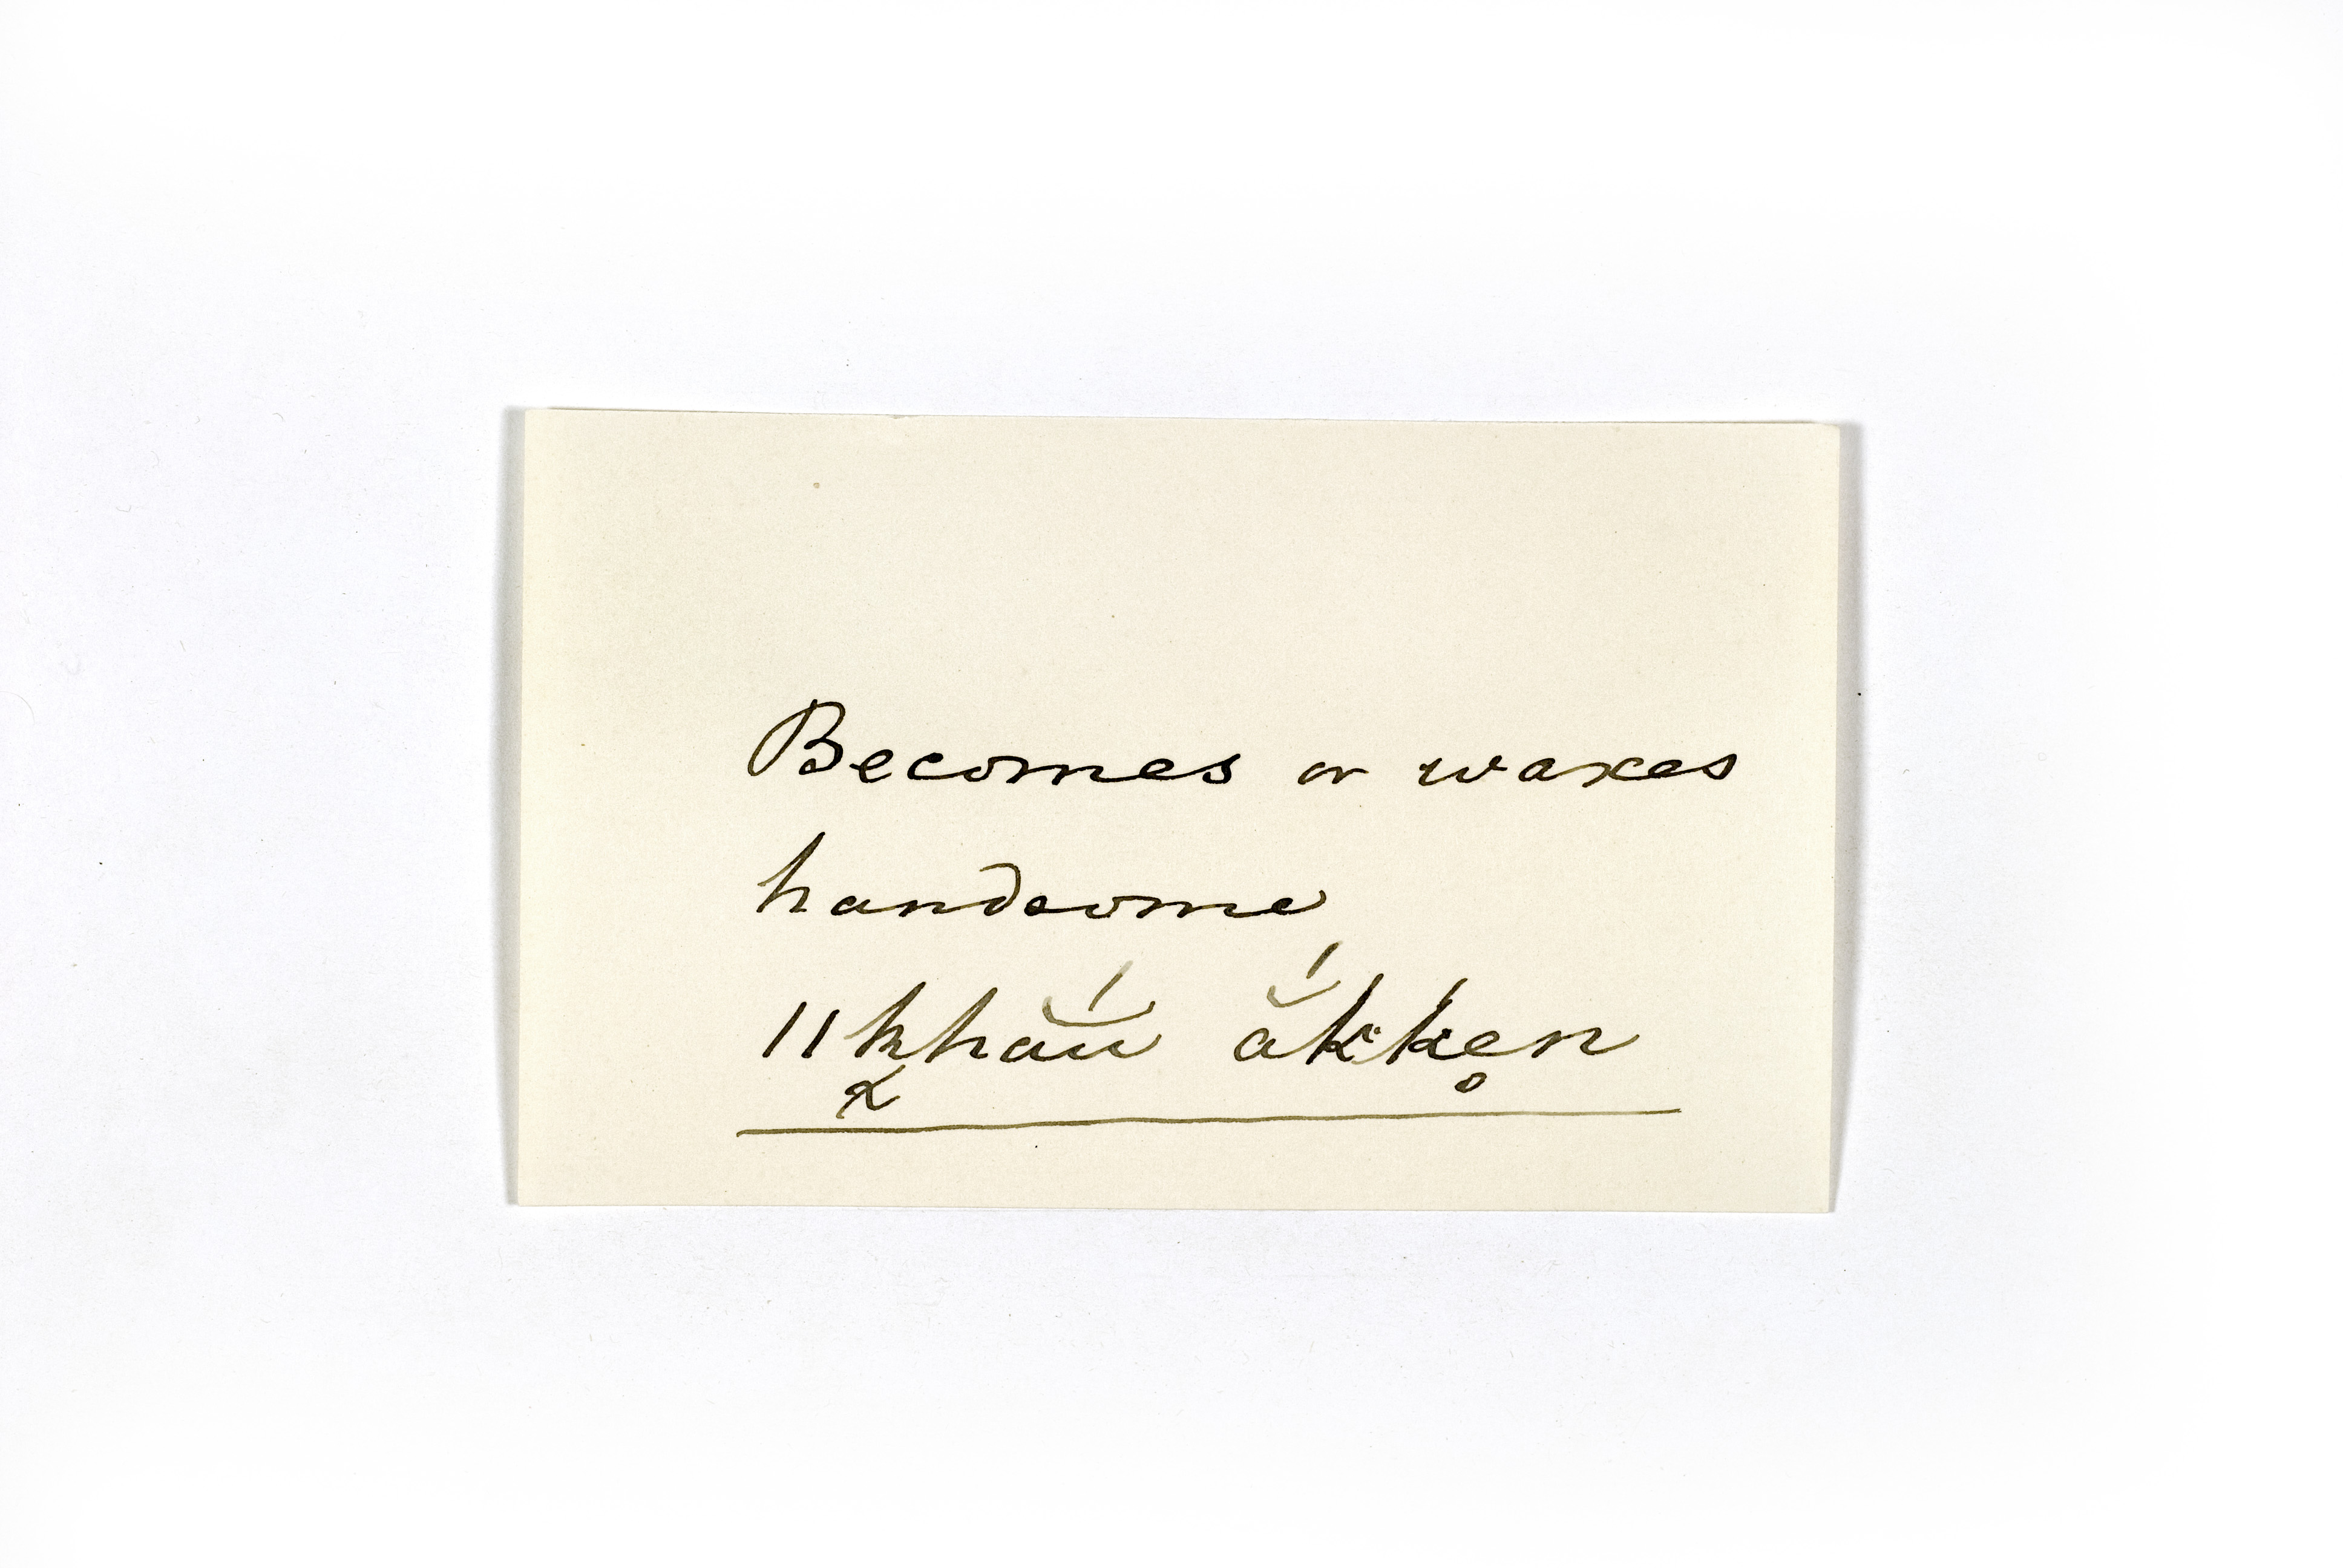 Becomes or waxes
handsome
ǁk͓hắŭ ắkke̥n